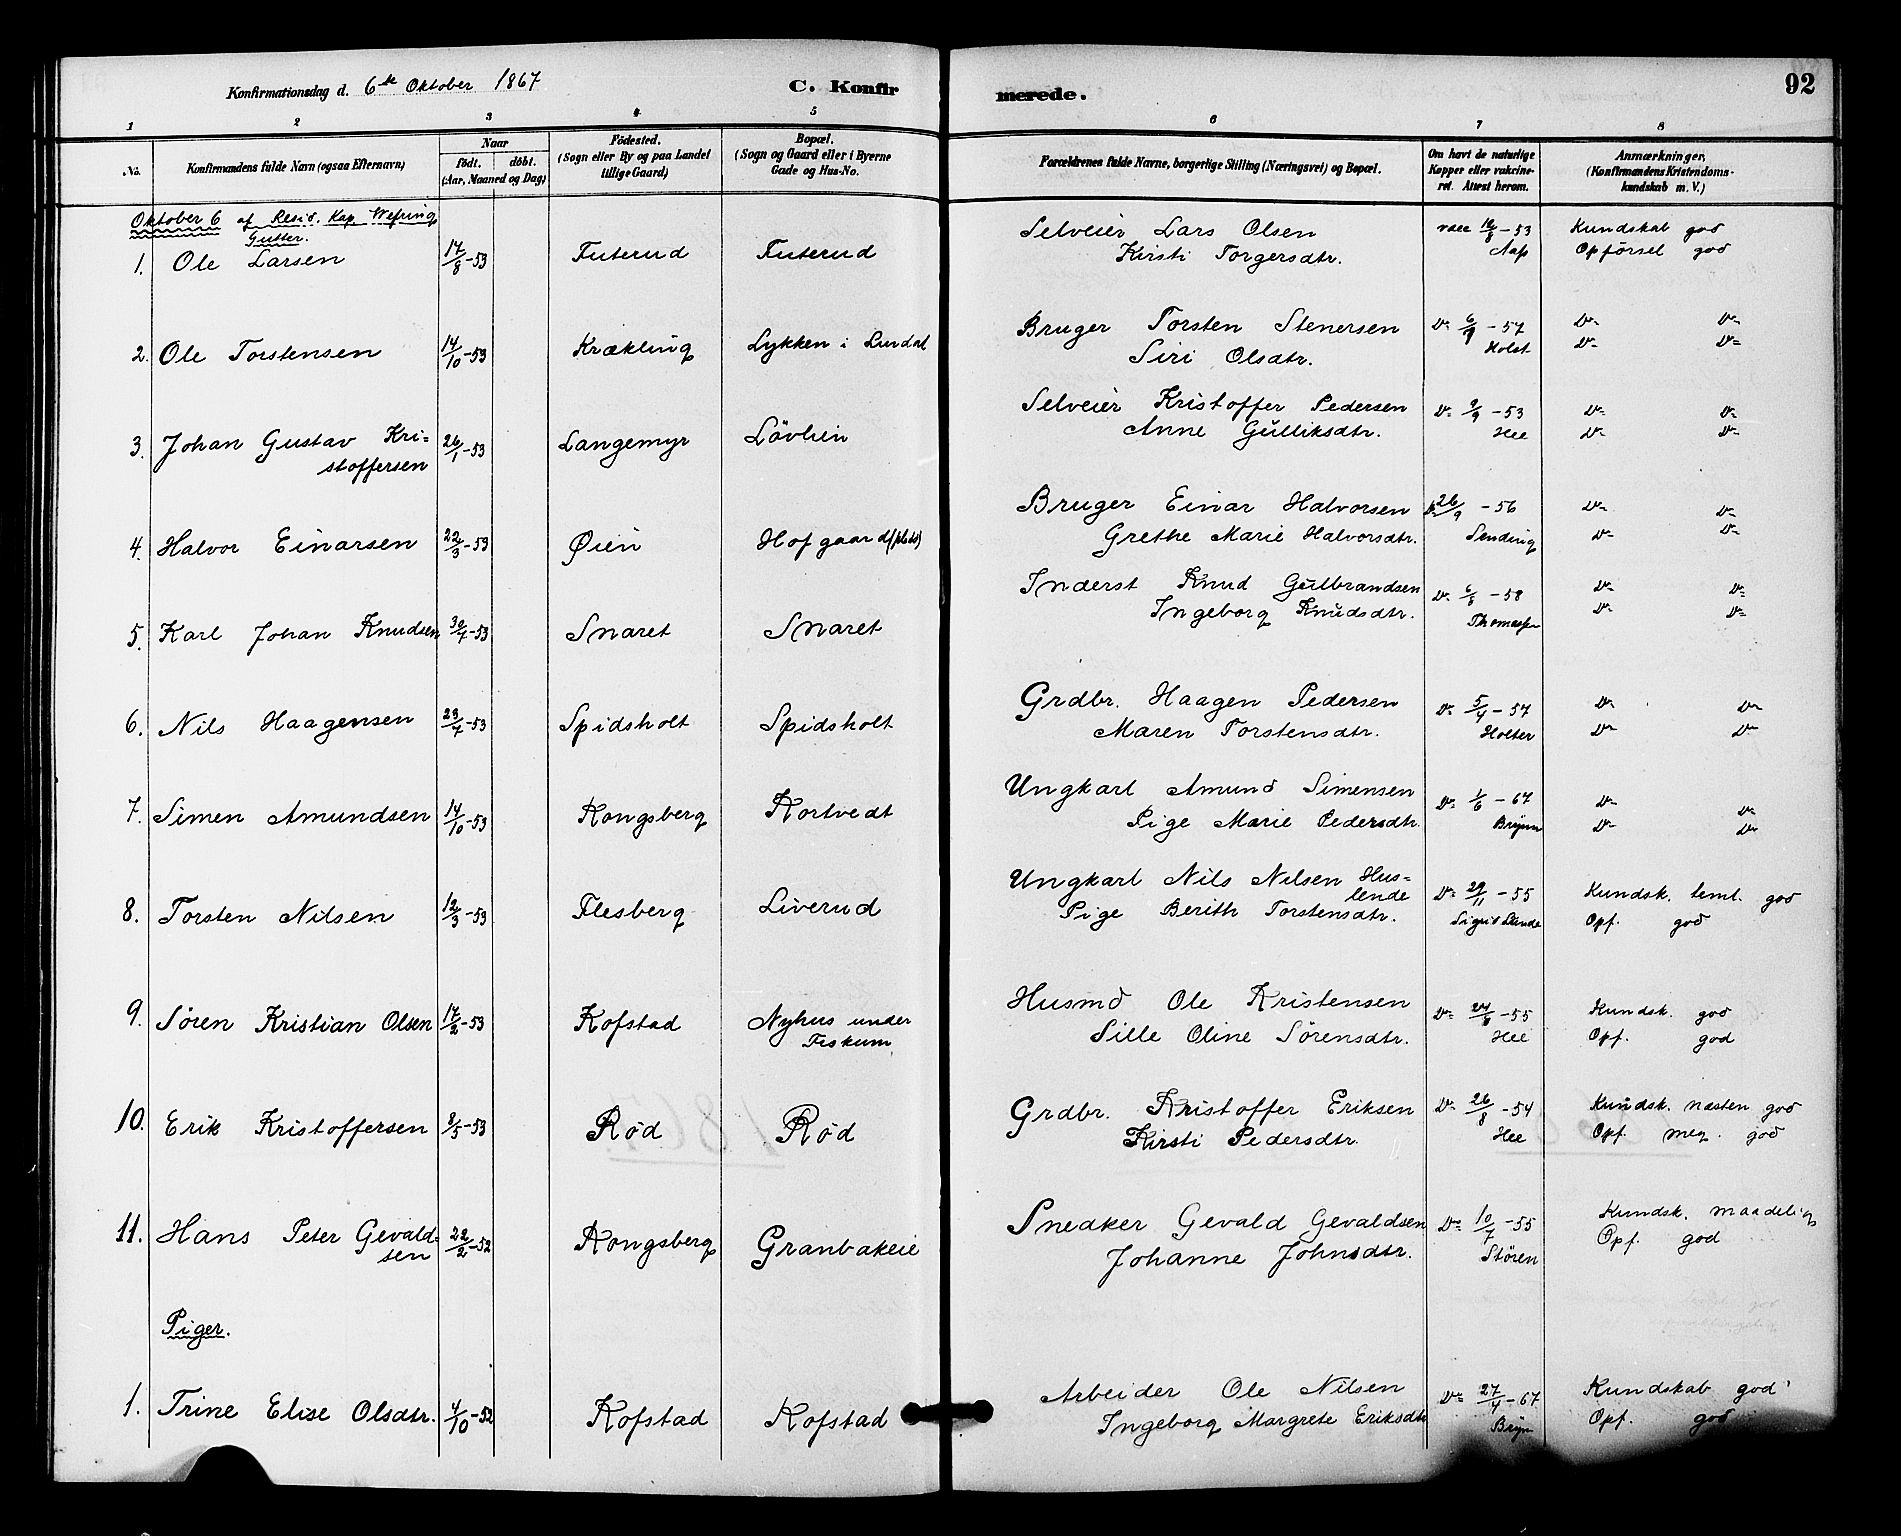 Konfirmationsdag d. 6te Oktober 1867
C. Konfirmerede.
92
1 2 3 4 5 6 7 8
No.
Konfirmandens fulde Navn (ogsaa Efternavn)
Naar
födt. döbt.
(Aar, Maaned og Dag)
Födested.
(Sogn eller By og paa Landet
tillige Gaard)
Bopæl.
(Sogn og Gaard eller i Byerne
Gade og Hus-No.
Forældrenes fulde Navne, borgerlige Stilling (Næringsvei) og Bopæl.
Om havt de naturlige
Kopper eller vakcine-
ret. Attest herom.
Anmærkninger,
(Konfirmandens Kristendoms-
kundskab m. V.)
Oktober 6 af Resid. Kap. Wefring
Gutter.
1. Ole Larsen 17/8-53 Futerud Futerud
Selveier Lars Olsen vacc 12/8-53 Kundskab god
Kirsti Torgersdtr. Aas Opförsel god
2. Ole Torstensen 14/10-53 Krækling Lykken i Lurdal
Bruger Torsten Stenersen Do 6/9-57 Do Do
Siri Olsdtr. Holst Do Do
3. Johan Gustav Kri-
stoffersen 26/1-53 Langemyr Lövlien
Selveier Kristoffer Pedersen Do 9/9-53 Do Do
Anne Gulliksdtr. Hee Do Do
4. Halvor Einarsen 22/3-53 Øien Hofgaard (plads)
Bruger Einar Halvorsen Do 26/9-56 Do Do
Grethe Marie Halvorsdtr. Sending Do Do
5. Karl Johan Knudsen 30/7-53 Snaret Snaret
Inderst Knud Gulbrandsen Do 6/8-58 Do Do
Ingeborg Knudsdtr. Thomassen Do Do
6. Nils Haagensen 23/7-53 Spidsholt Spidsholt
Grdbr. Haagen Pedersen Do 5/4-57 Do Do
Maren Torstensdtr. Holter Do Do
7. Simen Amundsen 14/10-53 Kongsberg Kortvedt
Ungkarl Amund Simensen Do 1/6-67 Do Do
Pige Marie Pedersdtr. Brynn Do Do
8. Torsten Nilsen 12/3-53 Flesberg Liverud
Ungkarl Nils Nilsen Hus-
lende Do 29/11-55 Kundsk. teml. god
Pige Berith Torstensdtr. Sigrid Lande Opf. god
9. Sören Kristian Olsen 17/2-53 Kofstad Nyhus under
Fiskum
Husmd Ole Kristensen Do 24/8-55 Kundsk. god
Sille Oline Sörensdtr. Hee Opf. god
10. Erik Kristoffersen 8/5-53 Röd Röd
Grdbr. Kristoffer Eriksen Do 26/8-54 Kundsk. næsten god
Kirsti Pedersdtr. Hee Opf. meg. god
11. Hans Peter Gevald-
sen 22/2-52 Kongsberg Granbakeie
Snedker Gevald Gevaldsen Do 10/7-55 Kundsk. maadelig
Johanne Johnsdtr. Stören Opf. god
Piger.
1. Trine Elise Olsdtr. 4/10-52 Kofstad Kofstad
Arbeider Ole Nilsen Do 27/4-67 Kundskab god
Ingeborg Margrete Eriksdtr Bryn Opf. god